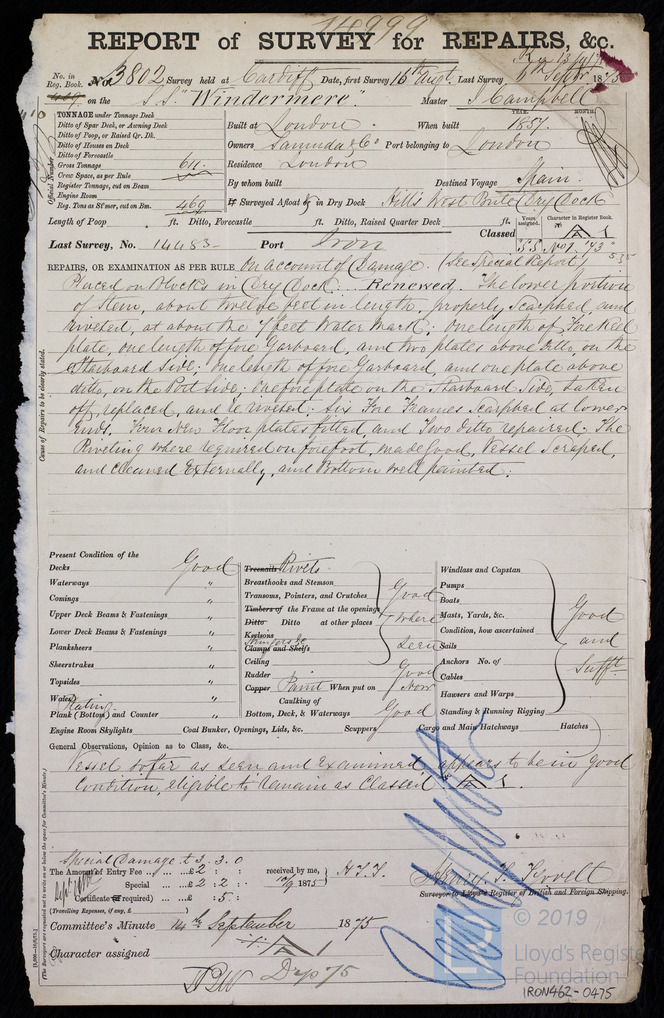 14999
REPORT of SURVEY for REPAIRS, &c.
No. in Reg. Book.
No. 3802 Survey held at Cardiff Date, first Survey 16th Augt. Last Survey 6th Septr 1875
469 on the S.S. "Windermere" Master J Campbell
TONNAGE under Tonnage Deck
Ditto of Spar Deck, or Awning Deck
Ditto of Poop, or Raised Qr. Dk.
Ditto of Houses on Deck
Ditto of Forecastle
Gross Tonnage 611
Crew Space, as per Rule
Register Tonnage, cut on Beam
Engine Room
Reg. Tons as St'mer, cut on Bm. 469
Official Number
Built at London When built 1857
YEAR. MONTH.
Owners Samuda & Co Port belonging to London
Residence London
By whom built Destined Voyage Spain
If Surveyed Afloat or in Dry Dock Hill's West Bute Dry Dock
Length of Poop ft. Ditto, Forecastle ft. Ditto, Raised Quarter Deck ft.
Years assigned. Character in Register Book.
Classed A 1
S.S. No 1. 73
Last Survey, No. 14483 Port Iron
REPAIRS, OR EXAMINATION AS PER RULE On account of Damage. (See Special Report)
Placed on blocks in Dry Dock. Renewed. The lower portion
of Stem, about twelve feet in length, properly scarphed and
riveted, at about the 7 feet Water Mark; One length of Fore Keel
plate, one length of fore Garboard, and two plates above Ditto, on the
Starboard Side; One length of fore Garboard, and one plate above
ditto, on the Port Side; One fore plate on the Starboard Side, taken
off, replaced, and re riveted; Six Fore Frames scarphed at lower
ends. Four New Floor plates fitted, and Two Ditto repaired. The
Riveting where required on forefoot, made Good, Vessel Scraped,
and cleaned Externally, and Bottom well painted.
Cause of Repairs to be clearly stated.
Present Condition of the
Decks Good
Waterways "
Comings "
Upper Deck Beams & Fastenings "
Lower Deck Beams & Fastenings "
Planksheers "
Sheerstrakes "
Topsides "
Wales "
Plating
Plank (Bottom) and Counter "
Treenails Rivets
Breasthooks and Stemson
Transoms, Pointers, and Crutches
Timbers of the Frame at the openings
Ditto Ditto at other places
Keelsons
Stringers &c
Clamps and Shelfs
Good where seen
Ceiling
Rudder Good
Copper Paint When put on Now
Caulking of
Bottom, Deck, & Waterways Good
Windlass and Capstan
Pumps
Boats
Masts, Yards, &c.
Condition, how ascertained
Sails
Anchors No. of
Cables
Hawsers and Warps
Standing & Running Rigging
Good and Sufft
Engine Room Skylights Coal Bunker, Openings, Lids, &c. Scuppers Cargo and Main Hatchways Hatches
General Observations, Opinion as to Class, &c.
Vessel so far as seen and Examined appears to be in Good
Condition, eligible to remain as Classed A 1.
(The Surveyors are requested not to write on or below the space for Committee's Minute.)
Special Damage £3.3.0
The Amount of Entry Fee .. £ 2 : :
Special £ 2 : 2 :
Certificate (if required) : 5 :
(Travelling Expenses, if any, £ )
received by me,
10/9 1875
Surveyor to Lloyd's Register of British and Foreign Shipping.
Committee's Minute 14th September 1875
Character assigned A 1
© 2019
Lloyd's Register
Foundation
IRON462-0475